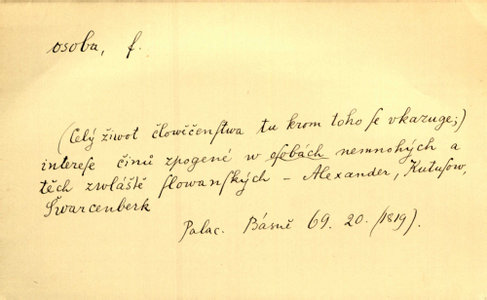 osoba, f.
(Celý žiwot člowičenstwa tu krom toho se vkazuge;)
interese činů zpogené w osobach nemnohých a
těch zwláště slowanských – Alexander, Kutusow,
Šwarcenberk
Palac. Básně 69. 20. (1819).